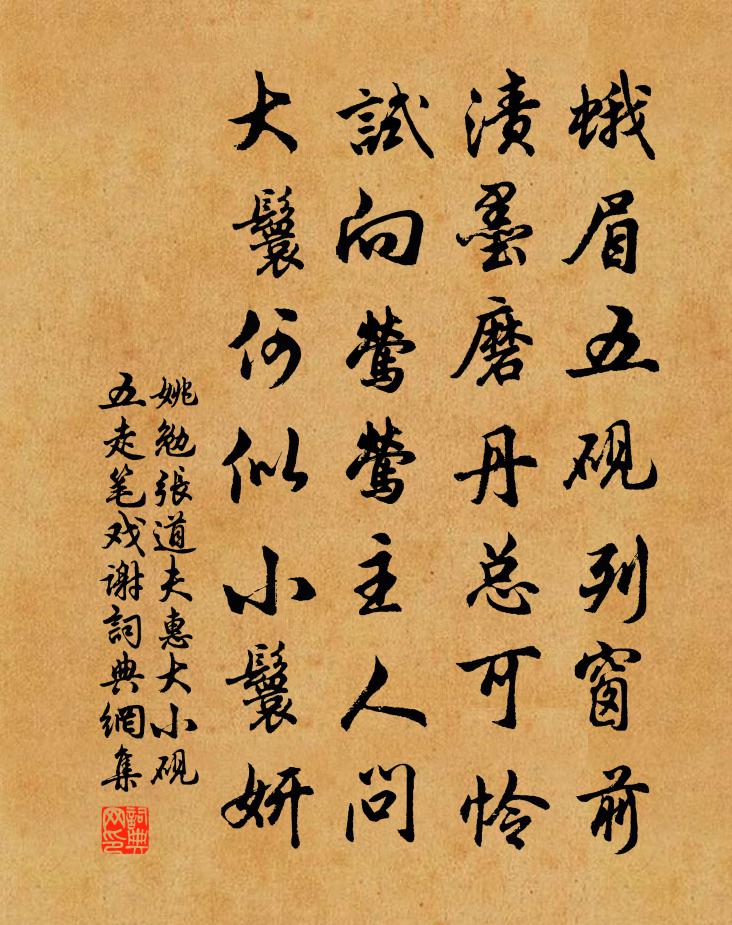 蛾眉五砚列窗前
渍墨磨丹总可怜
試向莺莺主人问
大鬟何似小鬟妍
姚勉張道夫惠大小砚
五走笔戏谢詞典網集
詞典
网印